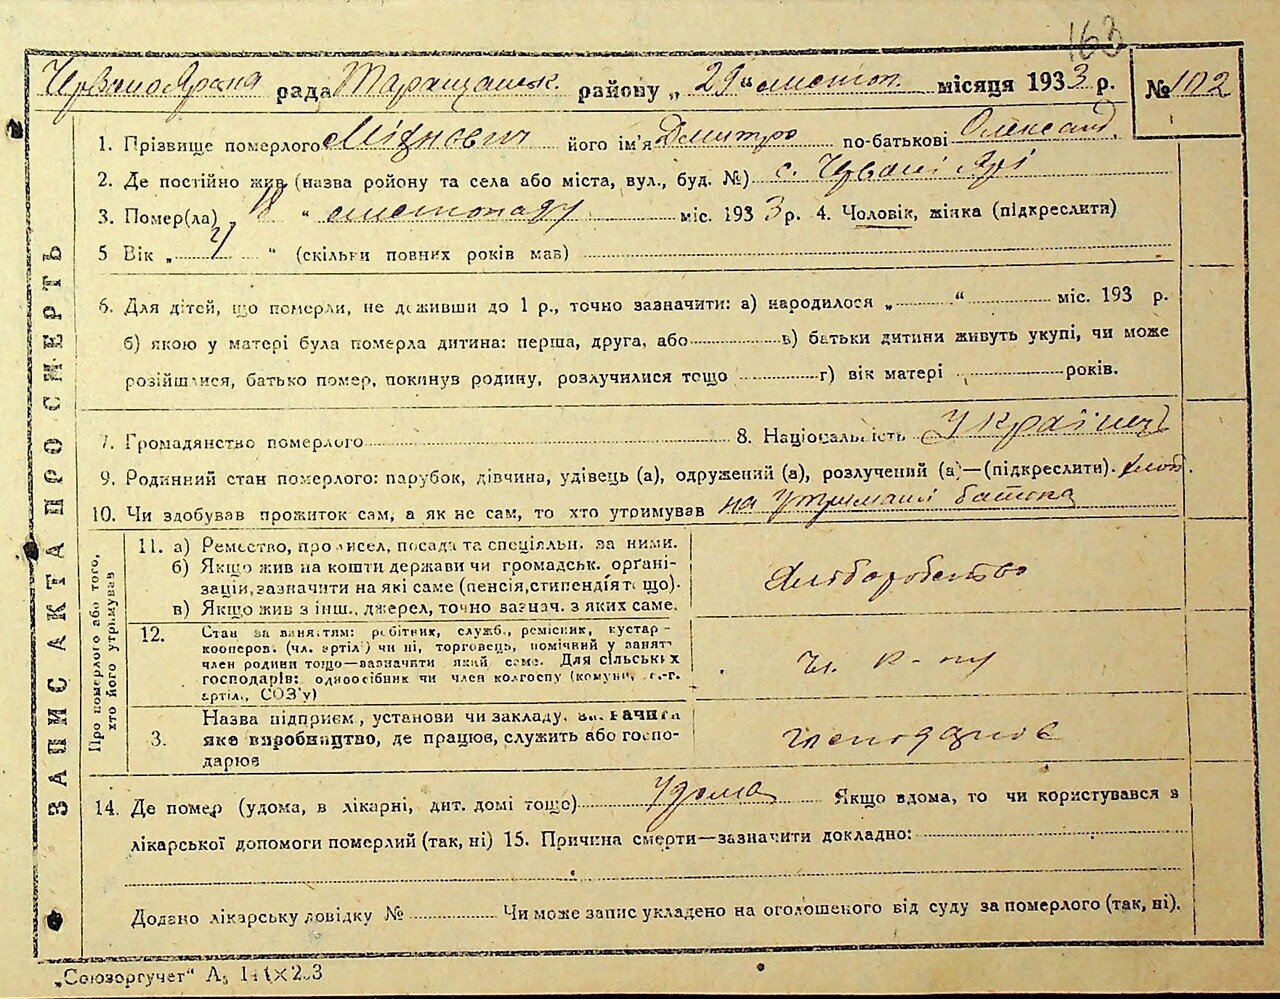 163
Червоноярська рада Таращанськ. району „29“ листоп. місяця 1933 р. № 102
1. Прізвище померлого Міхнович його ім'я Дмитро по-батькові Олександ.
2. Де постійно жив (назва ройону та села або міста, вул., буд. №) с. Червоні Ярі
3. Помер(ла) „18“ листопаду міс. 1933 р. 4. Чоловік, жінка (підкреслити)
5 Вік „ “ (скільки повних років мав)
6. Для дітей, що померли, не доживши до 1 р., точно зазначити: а) народилося „ “ міс. 193 р.
б) якою у матері була померла дитина: перша, друга, або в) батьки дитини живуть укупі, чи може
розійшлися, батько помер, покинув родину, розлучилися тощо г) вік матері років.
7. Громадянство померлого 8. Національність Українець
9. Родинний стан померлого: парубок, дівчина, удівець (а), одружений (а), розлучений (а)—(підкреслити).
10. Чи здобував прожиток сам, а як не сам, то хто утримував на утриманні батька
ЗАПИС АКТА ПРО СМЕРТЬ
Про померлого або того, хто його утримував
11. а) Ремество, промисел, посада та спеціяльн. за ними.
б) Якщо жив на кошти держави чи громадськ. орґані-
зацій, зазначити на які саме (пенсія, стипендія тощо).
в) Якщо жив з інш., джерел, точно зазнач. з яких саме.
Хліборобство
12. Стан за заняттям: робітник, служб., ремісник, кустар -
кооперов. (чл. артілі) чи ні, торговець, помічний у занят.
член родини тощо—зазначити який саме. Для сільських
господарів: одноосібник чи член колгоспу (комуни, с.-г.
артіл., СОЗ'у)
Чл. к-пу
3. Назва підприєм, установи чи закладу. зазначити
яке виробництво, де працює, служить або госпо-
дарює
14. Де помер (удома, в лікарні, дит. домі тощо) Удома Якщо вдома, то чи користувався з
лікарської допомоги померлий (так, ні) 15. Причина смерти—зазначити докладно:
Додано лікарську довідку № Чи може запис укладено на оголошеного від суду за померлого (так, ні).
„Союзоргучет“